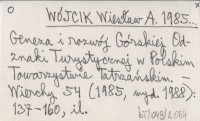 WÓJCIK Wiesław A. 1985...
Geneza i rozwój Górskiej Od-
znaki Turystycznej w Polskim
Towarzystwie Tatrzańskim. –
Wierchy 54 (1985, wyd. 1988):
137–160, il.